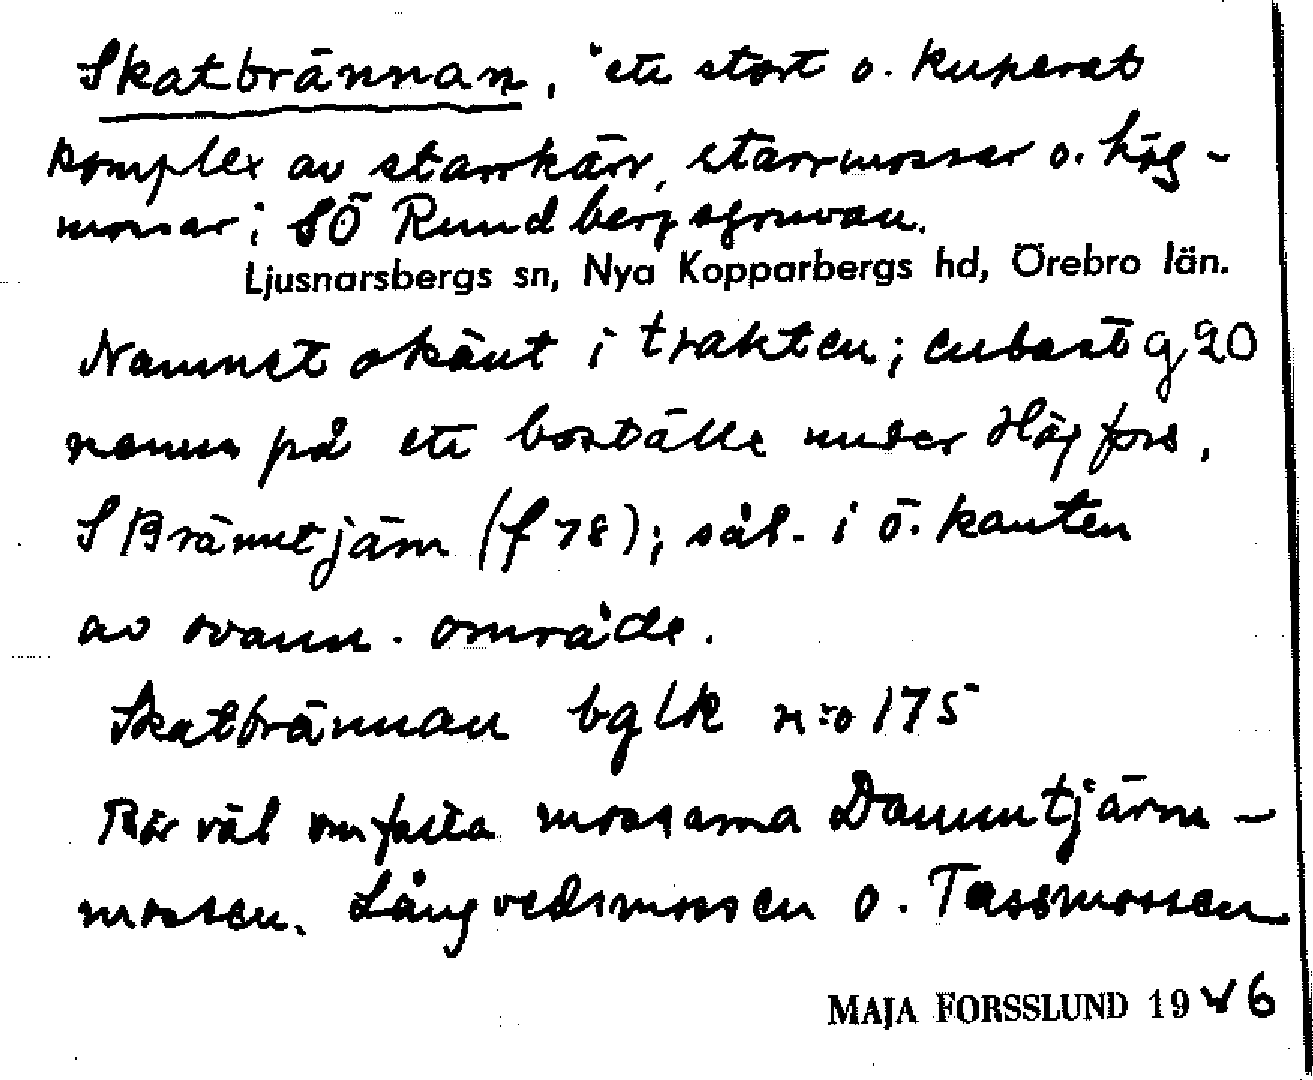 Skatbrännan, ett stort o. kuperat
komplex av starrkärr, starrmossar o. hög-
mossar i SÖ Rundbergsgruvan.
Ljusnarsbergs sn, Nya Kopparbergs hd, Örebro län.
Namnet okänt i trakten; endast g 20
namn på ett boställe under Högfors,
S Bränntjärn (f 78); sål. i ö. kanten
av ovann. område.
Skatbrännan bglk n:o 175
Bör väl omfatta mossarna Dammtjärn-
mossen, Långvedsmossen o. Tassmossen
MAJA FORSSLUND 1946